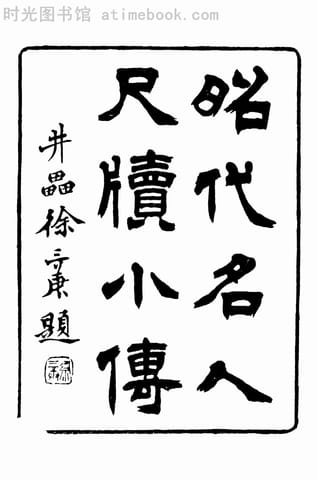 时光图书馆 www.atimebook.com
昭代名人
尺牘小傳
井罍徐三庚題